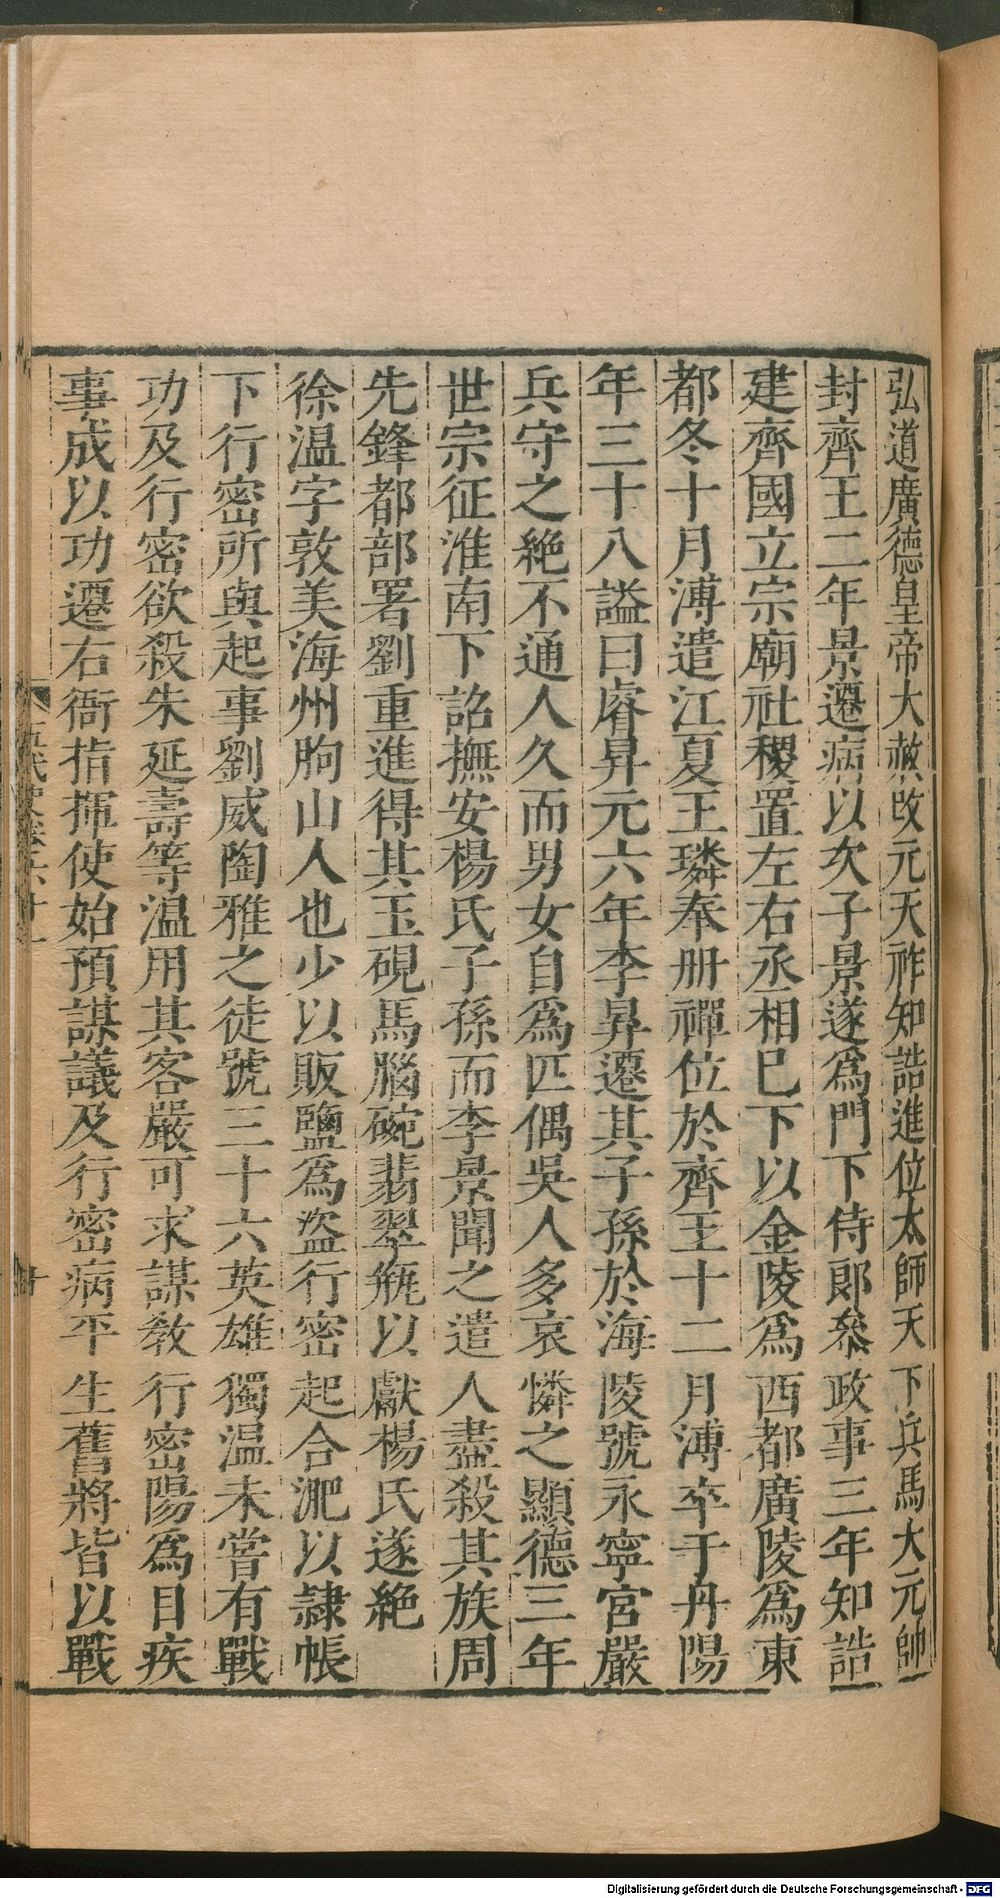 弘道廣德皇帝大赦改元天祚知誥進位太師天下兵馬大元帥
封齊王二年景遷病以次子景遂爲門下侍郎叅政事三年知誥
建齊國立宗廟社稷置左右丞相巳下以金陵爲西都廣陵爲東
都冬十月溥遣江夏王璘奉册禪位於齊王十二月溥卒于丹陽
年三十八謚曰睿昇元六年李昇遷其子孫於海陵號永寧宮嚴
兵守之絶不通人久而男女自爲匹偶吳人多哀憐之顯德三年
世宗征淮南下詔撫安楊氏子孫而李景聞之遣人盡殺其族周
先鋒都部署劉重進得其玉硯馬腦碗翡翠瓶以獻楊氏遂絶
徐温字敦美海州朐山人也少以販鹽爲盜行密起合淝以隷帳
下行密所與起事劉威陶雅之徒號三十六英雄獨温未嘗有戰
功及行密欲殺朱延壽等温用其客嚴可求謀敎行密陽爲目疾
事成以功遷右衙指揮使始預謀議及行密病平生舊將皆以戰
十
Digitalisierung gefördert durch die Deutsche Forschungsgemeinschaft - DFG